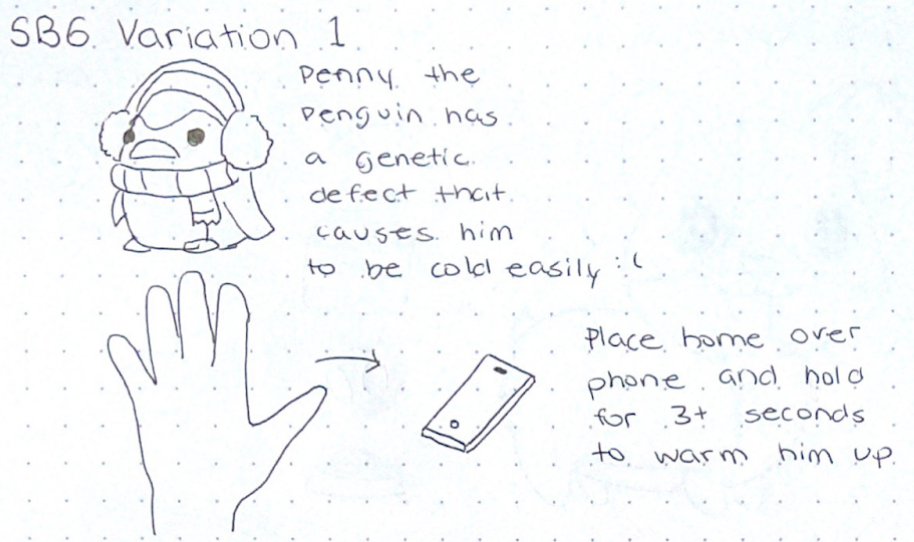 SB6 Variation 1
Penny the
Penguin has
a genetic
defect that
causes him
to be cold easily :(
Place home over
phone and hold
for 3+ seconds
to warm him up